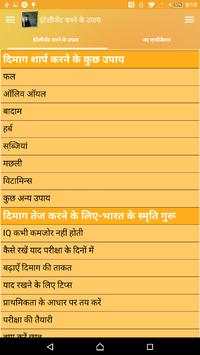 इंटेलीजेंट करने के उपाय
इंटेलीजेंट करने के उपाय
नए एप्लीकेशन
दिमाग शार्प करने के कुछ उपाय
फल
ऑलिव ऑयल
बादाम
हर्ब
सब्जियां
मछली
विटामिन्स
कुछ अन्य उपाय
दिमाग तेज करने के लिए-भारत के स्मृति गुरू
IQ कभी कमजोर नहीं होती
कैसे रखें याद परीक्षा के दिनों में
बढ़ाऐं दिमाग की ताकत
याद रखने के लिए टिप्स
प्राथमिकता के आधार पर तय करें
परीक्षा की तैयारी